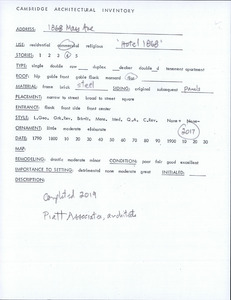 CAMBRIDGE ARCHITECTURAL INVENTORY
ADDRESS: 1868 Mass Ave
USE: residential commercial religious "Hotel 1868"
STORIES: 1 2 3 4 5
TYPE: single double row duplex decker double d tenement apartment
ROOF: hip gable front gable flank mansard flat
MATERIAL: frame brick steel SIDING: original subsequent panels
PLACEMENT: narrow to street broad to street square
ENTRANCE: flank front side front center
STYLE: None
ORNAMENT: little moderate elaborate 2017
DATE: 1790 1800 10 20 30 40 50 60 70 80 90 1900 10 20 30
MAP:
REMODELING: drastic moderate minor CONDITION: poor fair good excellent
IMPORTANCE TO SETTING: detrimental none moderate great INITIALED:
DESCRIPTION:
Completed 2019
Piatt Associates, architects